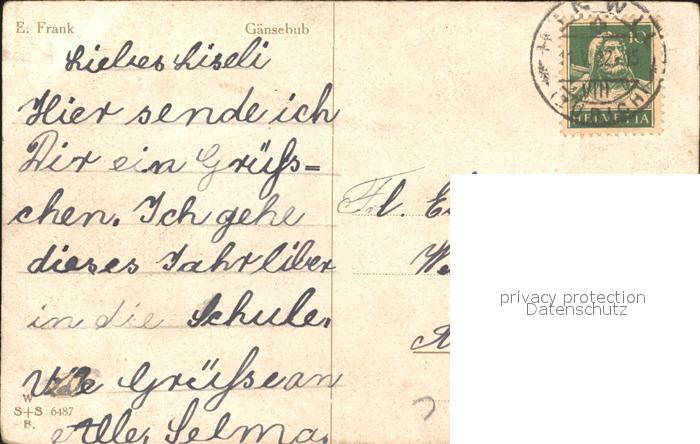 E. Frank
Gänsebub
10
HELVETIA
VIII
Liebes Liseli
Hier sende ich
Dir ein Grüss=
chen. Ich gehe
dieses Jahr liber
in die Schule.
Viele Grüsse an
Alle, Selma.
Frl.
privacy protection
Datenschutz
W
S+S 6487
B.